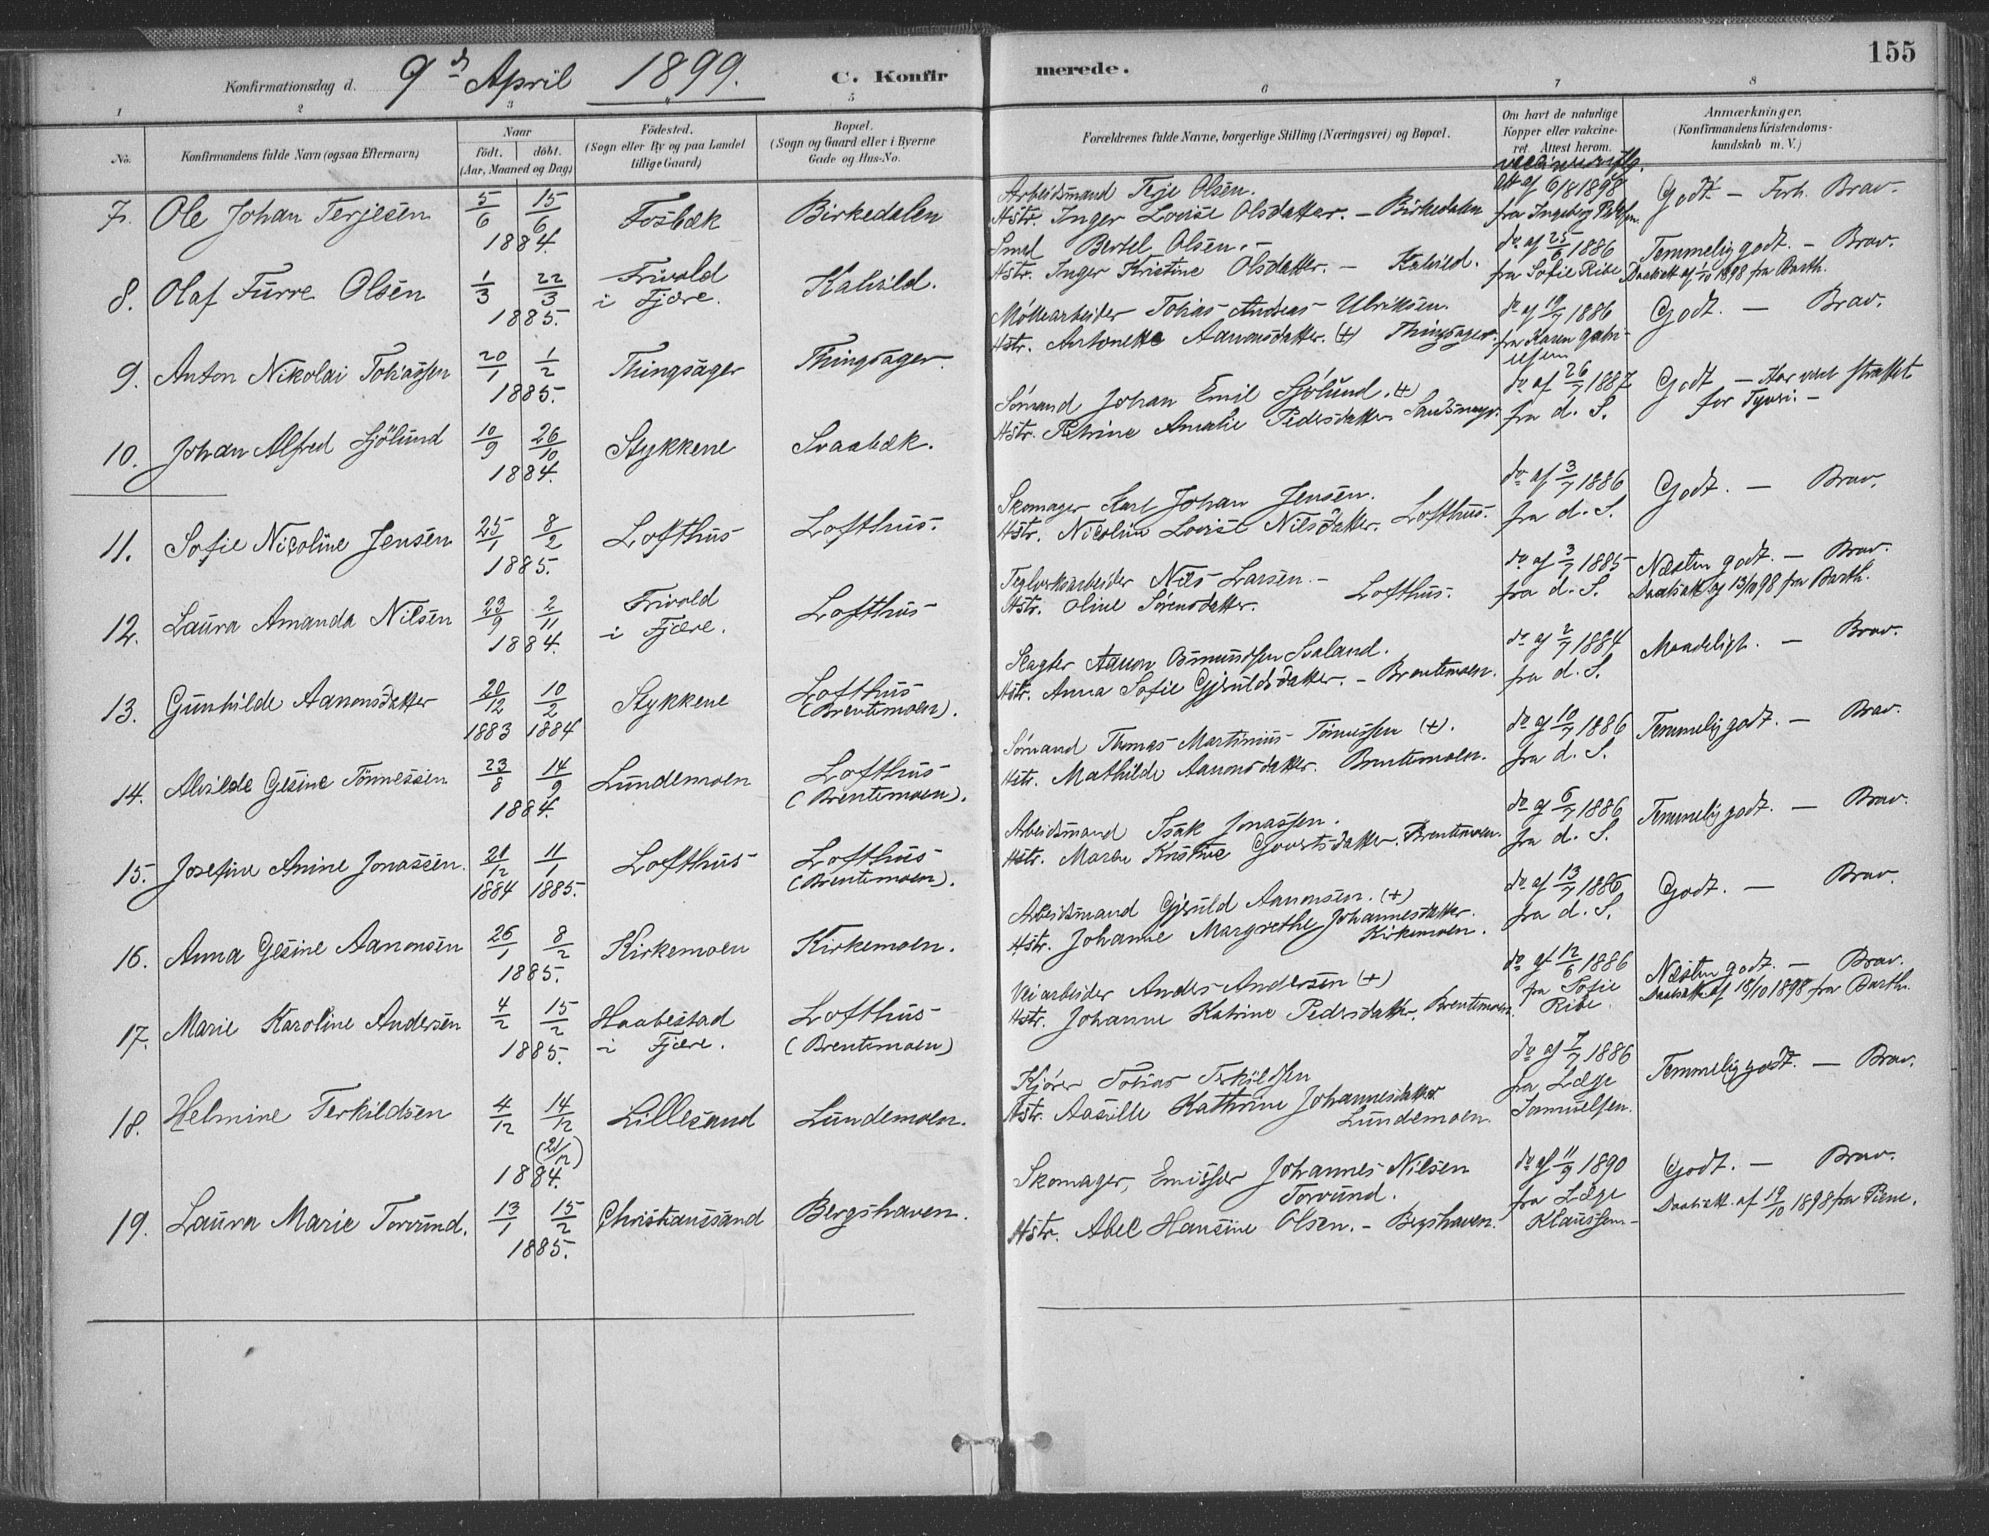 155
Konfirmationsdag d. 9de April 1899. C. Konfirmerede.
1 2 3 5 6 7 8
No. Konfirmandens fulde Navn (ogsaa Efternavn) Naar født, døbt. (Aar, Maaned og Dag) Fødested. (Sogn eller By og paa Landet tillige Gaard) Bopæl. (Sogn og Gaard eller i Byerne Gade og Hus-No. Forældrenes fulde Navne, borgerlige Stilling (Næringsvei) og Bopæl. Om havt de naturlige Kopper eller vakcineret. Attest herom. Anmærkninger. (Konfirmandens Kristendomskundskab m. V.)
7. Ole Johan Terjesen 5/6 15/6 1884. Fosbæk Birkedalen Arbeidsmand Terje Olsen. Hstr. Inger Lovise Olsdatter. - Birkedalen Att. af 6/8 1898 fra Ingeborg Godt - Forh. Brav.
8. Olaf Furre Olsen 1/3 22/3 1885. Frivold i Fjære. Kalvild. Smed Bertel Olsen. - Hstr. Inger Kristine Olsdatter. - Kalvild. do af 25/6 1886 fra Sofie Ribe Temmelig godt. - Brav. Daabsatt. af 1898 fra Barth.
9. Anton Nikolai Tobiassen 20/1 1/2 1885. Thingsager Thingsager. Møllearbeider Tobias Andreas Ulriksen. Hstr. Antonette Aanonsdatter. (+) Thingsager. do af 19/7 1886 fra Karen Godt. - Brav.
10. Johan Alfred Sjölund 10/9 26/10 1884. Stykkene Svaabæk. Sömand Johan Emil Sjölund. (+) Hstr. Petrine Amalie Pedersdatter. do af 26/7 1887 fra d. S. Godt - Har vært straffet for Tyveri. -
11. Sofie Nicoline Jensen 25/1 8/2 1885. Lofthus Lofthus. Skomager Karl Johan Jensen. Hstr. Nicoline Lovise Nilsdatter. Lofthus. do af 3/7 1886 fra d. S. Godt. - Brav.
12. Laura Amanda Nilsen 23/9 2/11 1884. Frivold i Fjære. Lofthus Teglverksarbeider Nils Larsen. - Hstr. Oline Sörensdatter. Lofthus. do af 3/7 1885 fra d. S. Næsten godt. - Brav. Daabsatt. af 98 fra Barth.
13. Gunhilde Aanonsdatter 20/12 1883 10/2 1884 Stykkene Lofthus (Brentemoen). Slagter Aanon Osmundsen Svaland. Hstr. Anna Sofie Gjeruldsdatter. - Brentemoen. do af 2/7 1884 fra d. S. Maadeligt. - Brav.
14. Alvilde Gesine Tönnessen 23/8 14/9 1884. Lundemoen Lofthus (Brentemoen). Sömand Thomas Martinius Tönnessen (+). Hstr. Mathilde Aanonsdatter. Brentemoen. do af 10/7 1886 fra d. S. Temmelig godt. - Brav.
15. Josefine Amine Jonassen. 21/12 1884 11/1 1885. Lofthus Lofthus (Brentemoen). Arbeidsmand Isak Jonassen. Hstr. Maren Kristine Govertsdatter. Brentemoen. do af 6/7 1886 fra d. S. Temmelig godt. - Brav.
16. Anna Gesine Aanonsen 26/1 8/2 1885. Kirkemoen Kirkemoen. Arbeidsmand Gjeruld Aanonsen. (+) Hstr. Johanne Margrethe Johannesdatter. Kirkemoen. do af 13/7 1886 fra d. S. Godt. - Brav.
17. Marie Karoline Andersen 4/2 15/2 1885. Haabestad i Fjære. Lofthus (Brentemoen) Veiarbeider Anders Andersen (+) Hstr. Johanne Katrine Pedersdatter. Brentemoen. do af 12/6 1886 fra Sofie Ribe Næsten godt. - Brav. Daabsatt. af 18/10 1898 fra Barth.
18. Helmine Terkildsen 4/12 14/12 (21/12) 1884. Lillesand Lundemoen. Kjörer Tobias Terkildsen Hstr. Aasille Kathrine Johannesdatter Lundemoen. do af 7/7 1886 fra Læge Samuelsen. Temmelig godt. - Brav.
19. Laura Marie Torvund. 13/1 15/2 1885. Christianssand Bergshaven. Skomager, Emissær Johannes Nilsen Torvund. Hstr. Abel Hansine Olsen. - Bergshaven. do af 11/9 1890 fra Læge Klaussen - Godt. - Brav. Daabsatt. af 19/10 1898 fra